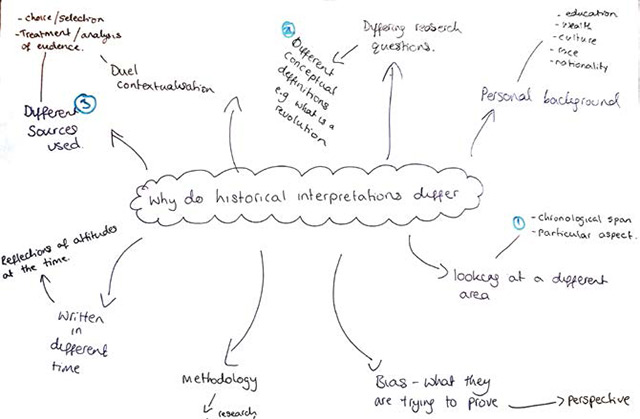 - choice/selection
- Treatment/analysis
of evidence.
Duel
contextualisation
Different ③
Sources
used.
②
Different
conceptual
definitions
e.g what is a
revolution
Differing research
questions.
- education
- wealth
- culture
- race
- nationality
Personal background
Why do historical interpretations differ
① - Chronological span
- Particular aspect.
looking at a different
area
Reflections of attitudes
at the time.
Written
in
different
time
Methodology
research
Bias - what they
are trying to prove
perspective